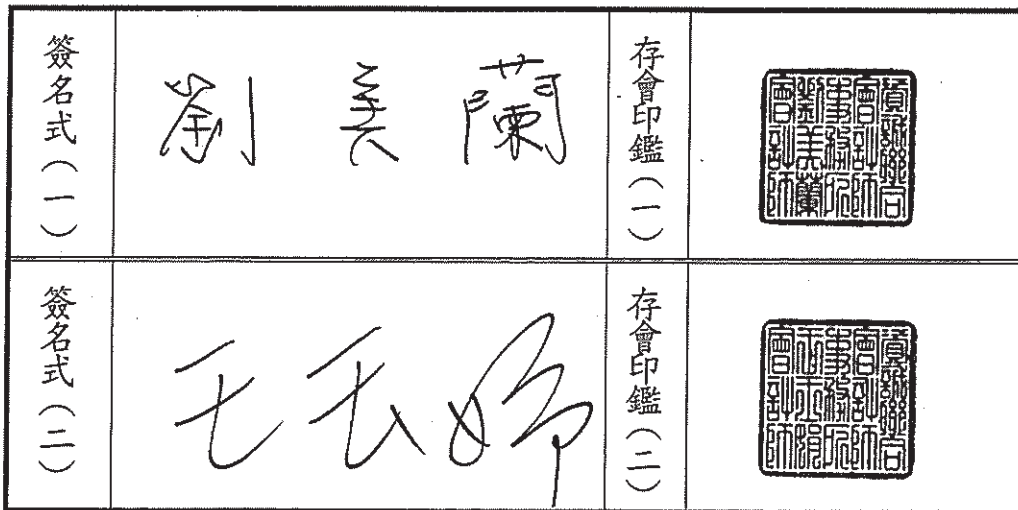 簽名式（一）
劉美蘭
存會印鑑（一）
資誠聯合
會計師
事務所
劉美蘭
會計師
簽名式（二）
存會印鑑（二）
資誠聯合
會計師
事務所
會計師